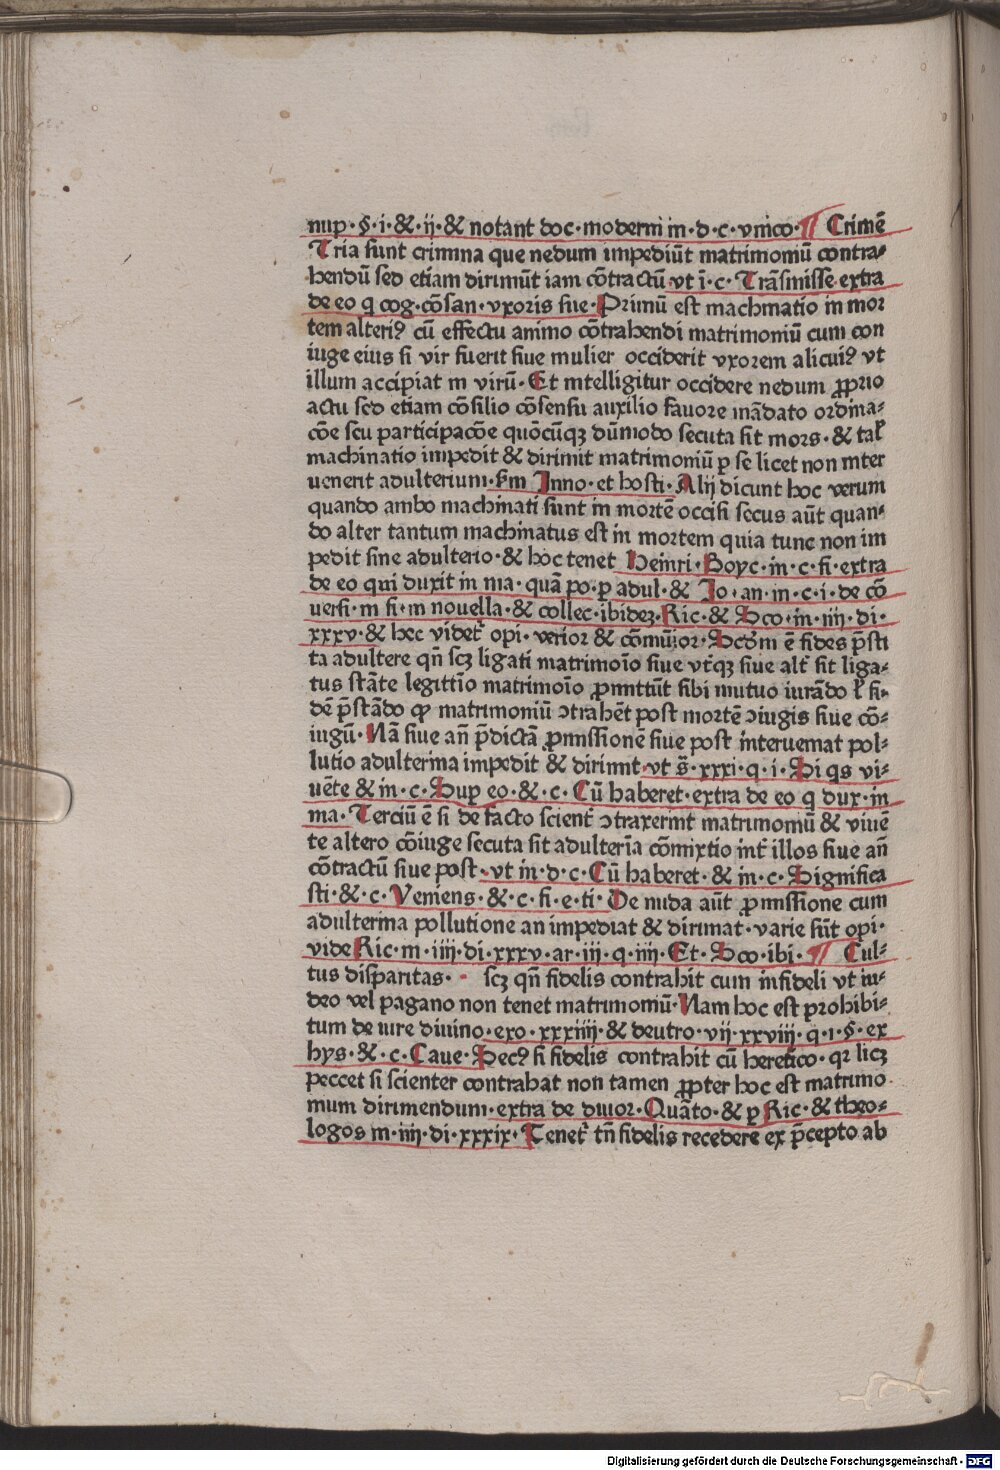 nup·§·i·&·ij·& notant doc·moderni in·d·c·vnico·¶ Crimē
Tria sunt crimina que nedum impediūt matrimoniū contra-
hendū sed etiam dirimūt iam cōtractū vt ī·c·Trāsmisse extra
de eo q cog·cōsan·vxoris sue·Primū est machinatio in mor
tem alteriꝰ cū effectu animo cōtrahendi matrimoniū cum con
iuge eius si vir fuerit siue mulier occiderit vxorem alicuiꝰ vt
illum accipiat in virū·Et intelligitur occidere nedum ꝓprio
actu sed etiam cōsilio cōsensu auxilio fauore mādato ordina-
cōe seu participacōe quōcūqꝫ dūmodo secuta sit mors·& tał
machinatio impedit & dirimit matrimoniū ꝑ se licet non inter
uenerit adulterium·s̄m Inno·et hosti·Alij dicunt hoc verum
quando ambo machinati sunt in mortē occisi secus aūt quan-
do alter tantum machinatus est in mortem quia tunc non im
pedit sine adulterio·& hoc tenet Heinri·Boyc·in·c·fi·extra
de eo qui duxit in ma·quā po·ꝑ adul·& Jo·an·in·c·i·de cō
uersi·in fi·in nouella·& collec·ibideꝫ·Ric·& Sco·in·iiij·di·
xxxv·& hec videt᷑ opi·verior & cōmūior·Scd̄m ē fides p̄sti
ta adultere qn̄ scꝫ ligati matrimoīo siue vt᷑qꝫ siue alt᷑ sit liga-
tus stāte legittīo matrimoīo ꝓmittūt sibi mutuo iurādo ł fi-
dē p̄stādo ꝙ matrimoniū ↄtrahēt post mortē ↄiugis siue cō-
iugū·Nā siue an̄ p̄dictā ꝓmissionē siue post interueniat pol-
lutio adulterina impedit & dirimit vt s̄·xxxi·q·i·Si qs vi-
uēte & in·c·Suꝑ eo·&·c·Cū haberet·extra de eo q dux·in
ma·Terciū ē si de facto scient᷑ ↄtraxerint matrimoniū & viuē
te altero cōiuge secuta sit adulterīa cōmixtio int᷑ illos siue an̄
cōtractū siue post·vt in·d·c·Cū haberet·& in·c·Significa
sti·&·c·Veniens·&·c·fi·e·ti·De nuda aūt ꝓmissione cum
adulterina pollutione an impediat & dirimat·varie sūt opi·
vide Ric·in·iiij·di·xxxv·ar·iii·q·iiij·Et·Sco·ibi·¶ Cul-
tus disparitas·  scꝫ qn̄ fidelis contrahit cum infideli vt iu-
deo vel pagano non tenet matrimoniū·Nam hoc est prohibi-
tum de iure diuino·exo·xxxiiij·& deutro·vij·xxviij·q·i·§·ex
hys·&·c·Caue·Secꝰ si fidelis contrahit cū heretico·qr licꝫ
peccet si scienter contrahat non tamen ꝓpter hoc est matrimo
nium dirimendum·extra de diuor·Quāto·& ꝑ Ric·& theo-
logos in·iiij·di·xxxix·Tenet᷑ tn̄ fidelis recedere ex p̄cepto ab
Digitalisierung gefördert durch die Deutsche Forschungsgemeinschaft - DFG